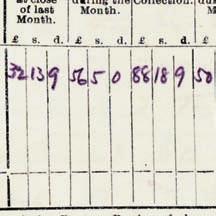 at close during the Collection. du
of last Month. M
Month.
£ s. d. £ s. d. £ s. d. £ s.
32 13 9 56 5 0 88 18 9 50